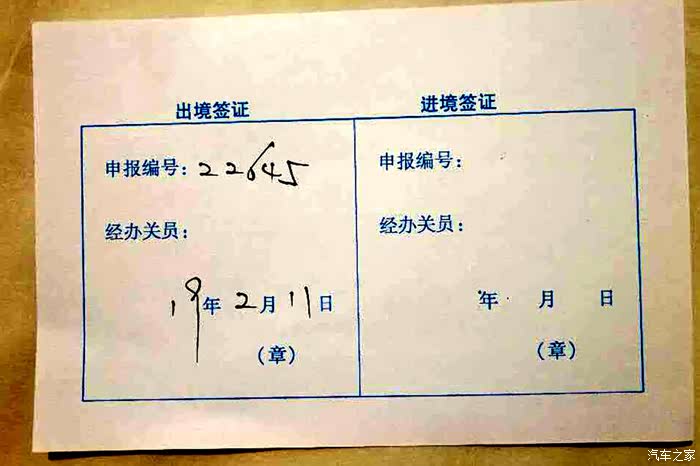 出境签证
申报编号：22645
经办关员：
19年2月11日
（章）
进境签证
申报编号：
经办关员：
年 月 日
（章）
汽车之家